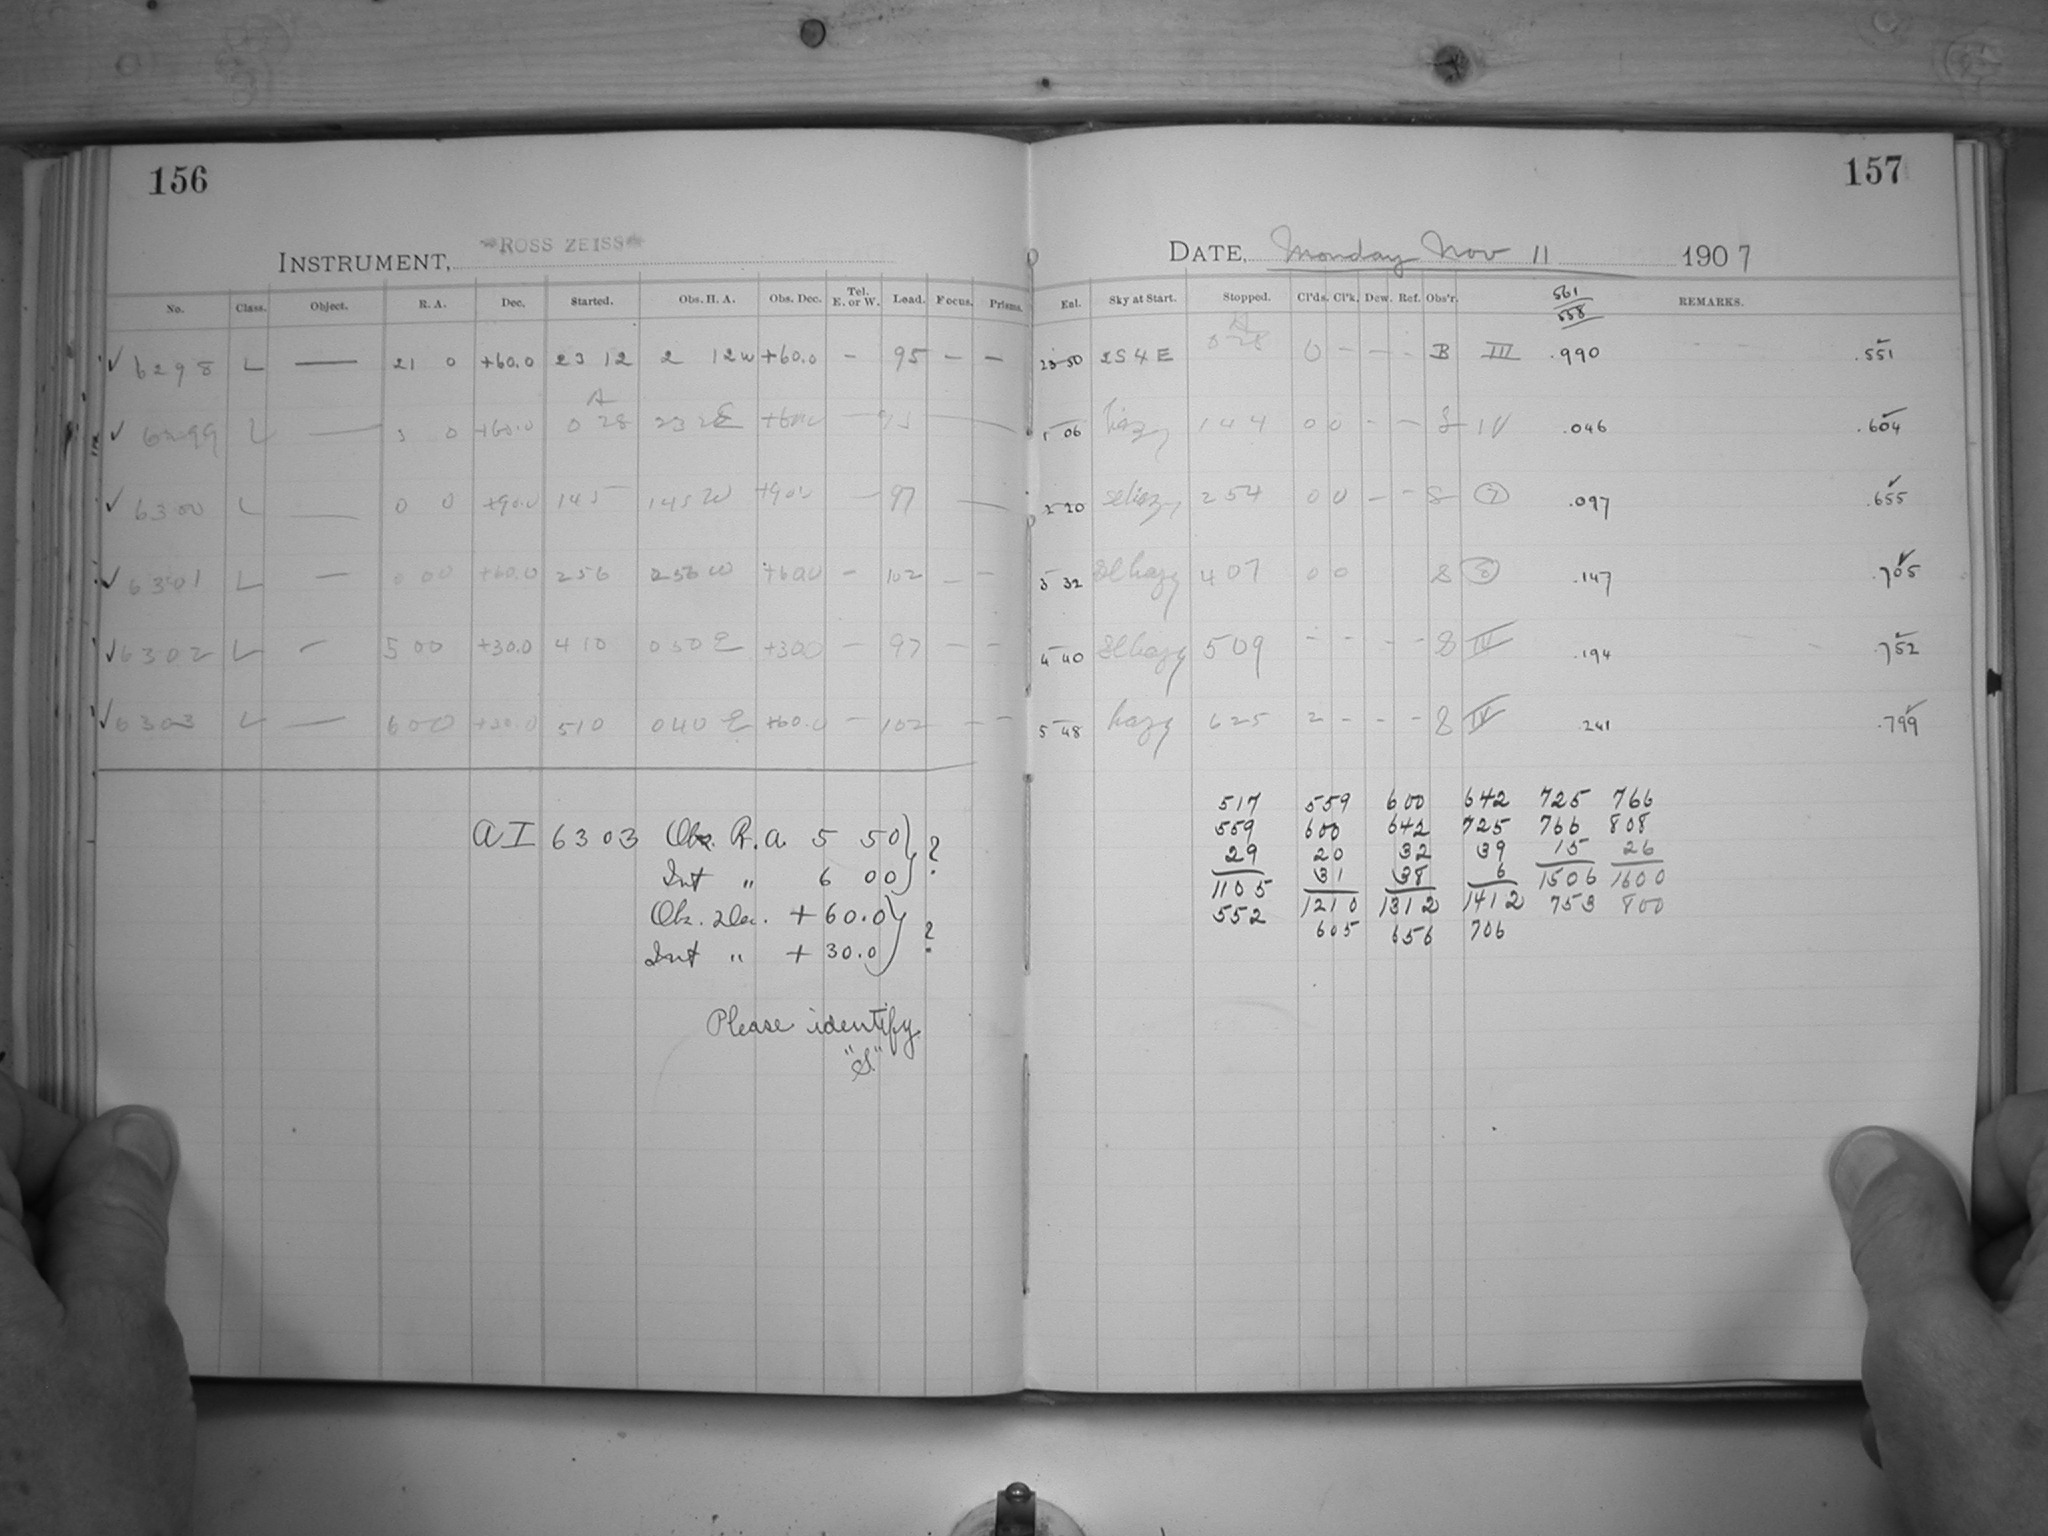 156
INSTRUMENT, *ROSS ZEISS*
No. Class. Object. R. A. Dec. Started. Obs. H. A. Obs. Dec. Tel. E. or W. Load. Focus. Prisms.
✓ 6298 L — 21 0 +60.0 23 12 2 12 W +60.0 - 95 - -
✓ 6299 L — 0 +60.0 0 28 +60.0 —
✓ 6300 L — 0 0 +90.0 1 45 1 45 W +90.0 — 97 —
✓ 6301 L — 0 00 +60.0 2 56 2 56 W +60.0 - 102 - -
✓ 6302 L - 5 00 +30.0 4 10 0 50 E +30.0 - 97 - -
✓ 6303 L — 6 00 5 10 0 40 E +60.0 - 102 - -
AI 6303 Obs. R.A. 5 50 } ?
Int " 6 00
Obs. Dec. + 60.0 } ?
Int " + 30.0
Please identify
"S."
157
DATE, Monday Nov 11 1907
Eal. Sky at Start. Stopped. Cl'ds. Cl'k. Dew. Ref. Obs'r. 561 558 REMARKS.
23 50 2 S 4 E 0 28 0 - - - B III .990 .551
1 06 hazy 1 44 0 0 - - S IV .046 .604
2 20 sl hazy 2 54 0 0 - - S .097 .655
3 32 sl hazy 4 07 0 0 S .147 .705
4 40 sl hazy 5 09 - - - - S IV .194 .752
5 48 hazy 6 25 2 - - - S IV .241 .799
517 559 600 642 725 766
559 600 642 725 766 808
29 20 32 39 15 26
1105 31 38 6 1506 1600
552 1210 1312 1412 753 800
605 656 706